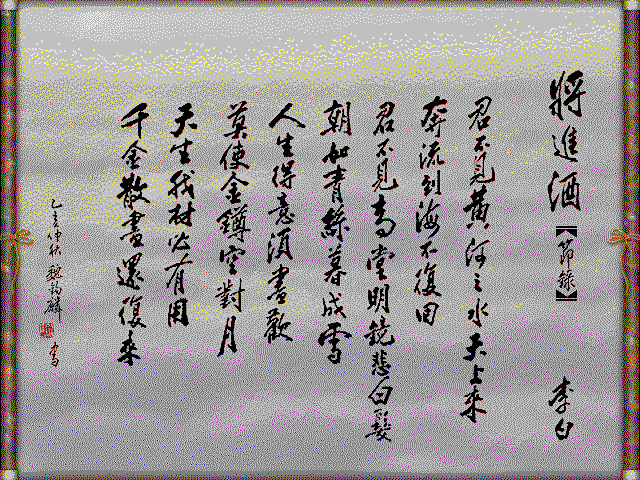 將進酒【節錄】 李白
君不見黃河之水天上來
奔流到海不復回
君不見高堂明鏡悲白髮
朝如青絲暮成雪
人生得意須盡歡
莫使金罇空對月
天生我材必有用
千金散盡還復來
乙亥仲秋 書